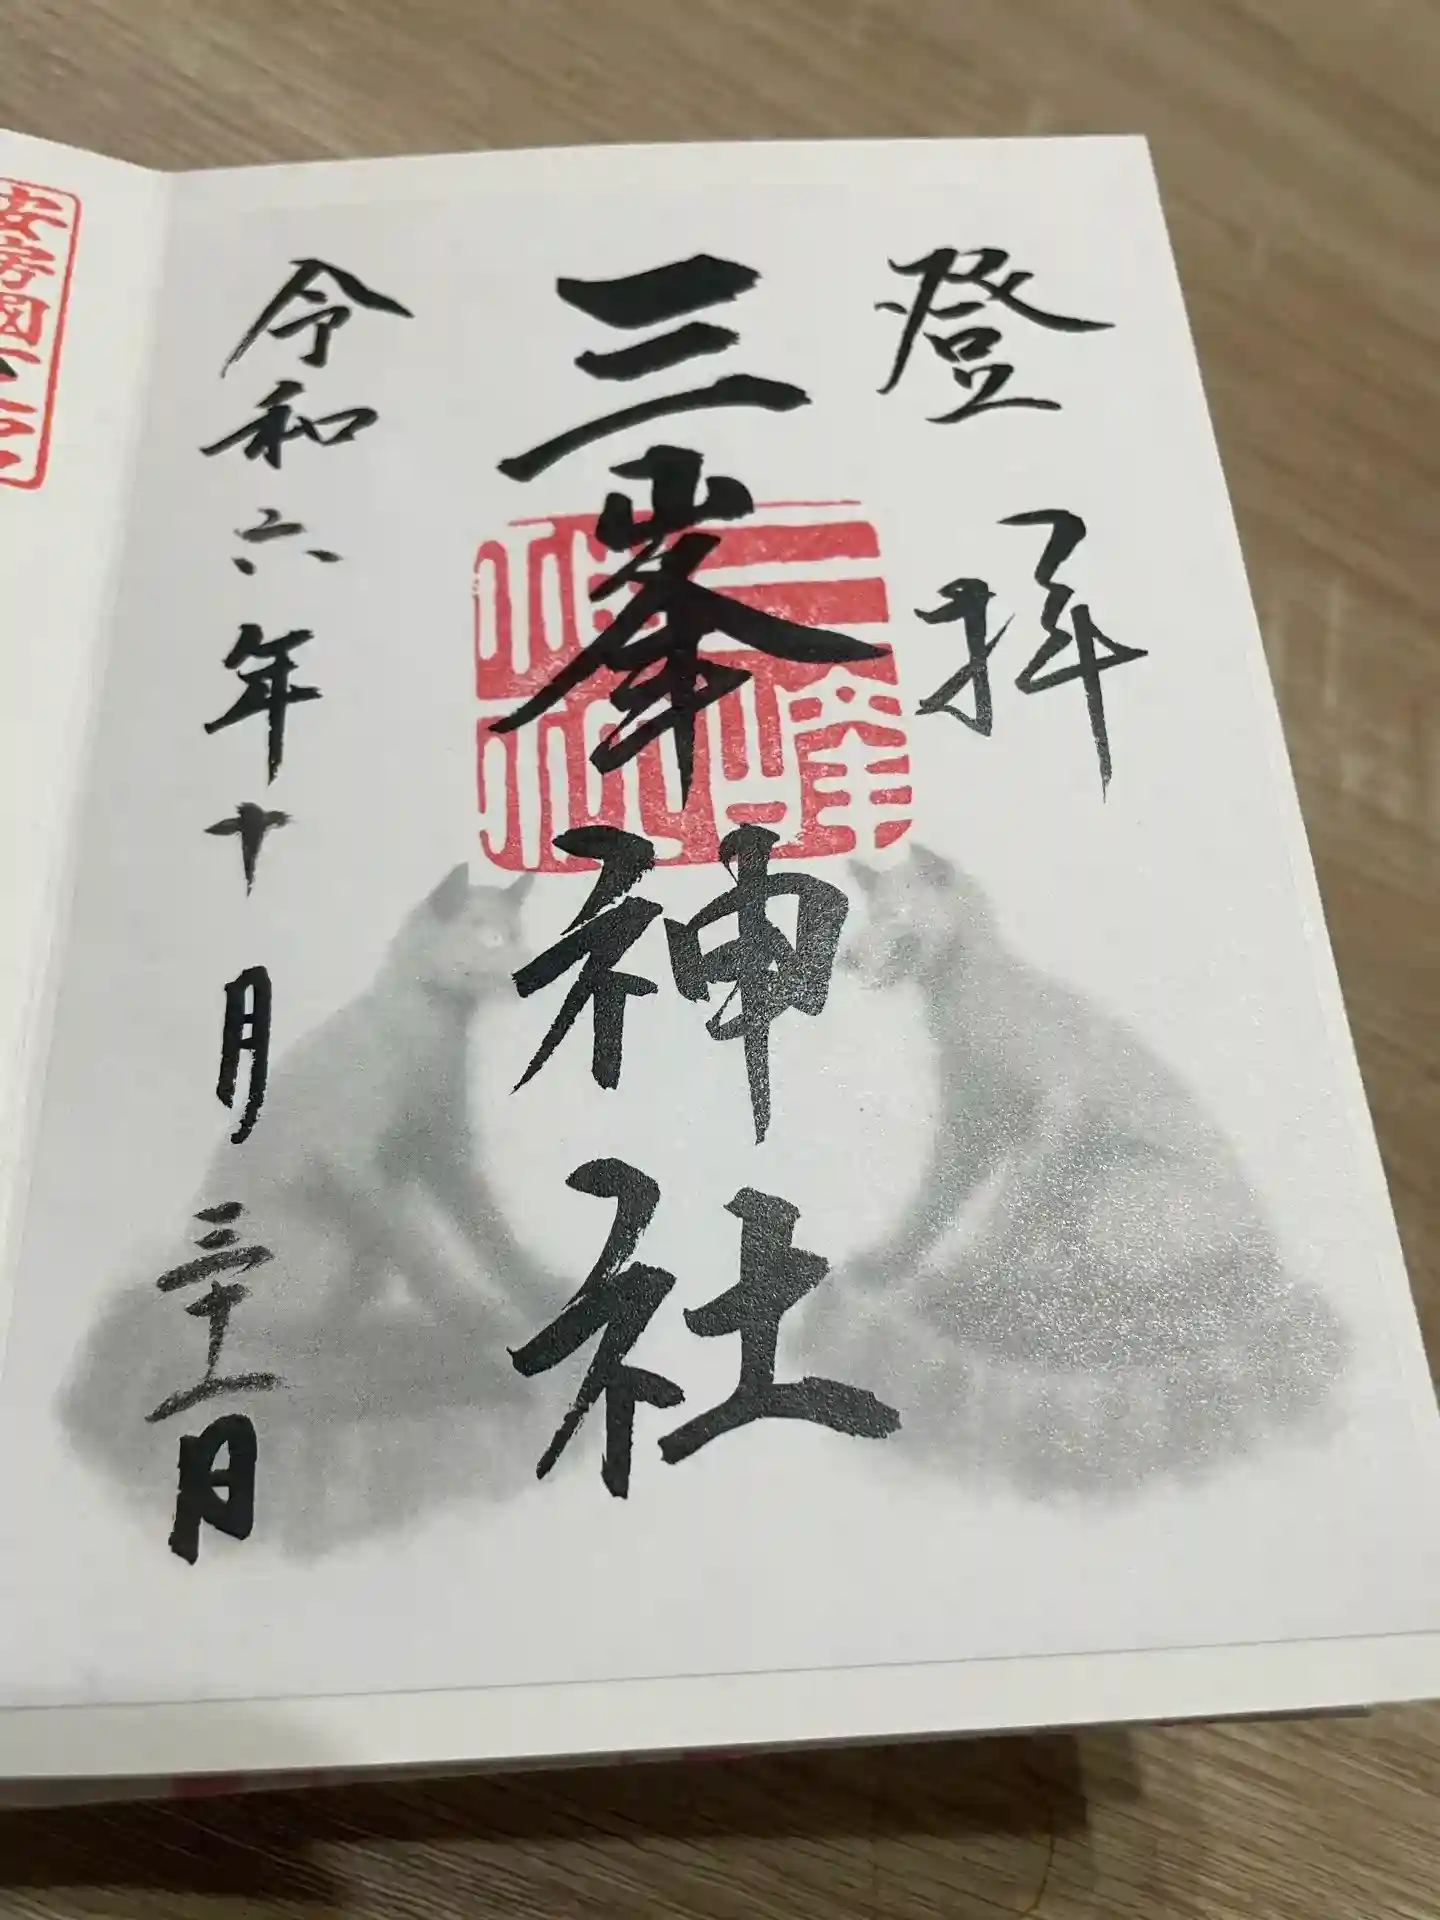 登拝
三峯神社
令和六年十月三十一日
安房國